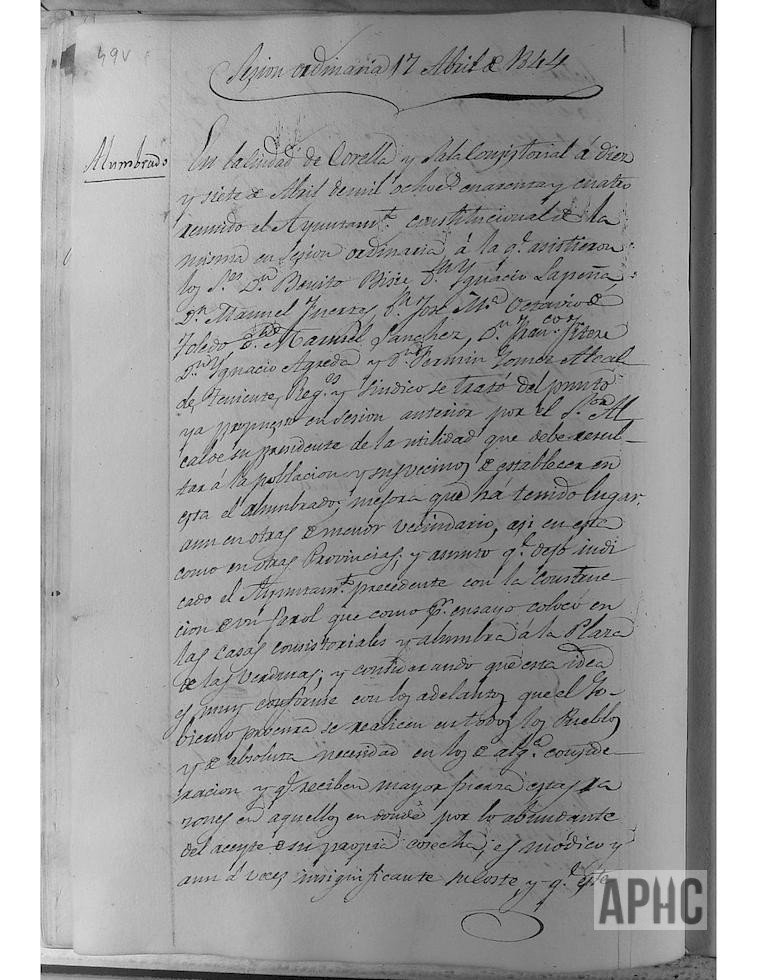 49v
Sesion ordinaria 17 Abril de 1844
Alumbrado
En la Ciudad de Corella y Sala Consistorial á diez
y siete de Abril de mil ochocs. cuarenta y cuatro
reunido el Ayuntamt. constitucional de la
misma en sesion ordinaria á la qe. asistieron
los Srs. Dn. Benito Dn. Ygnacio Lapeña
Dn. Manuel Fuertes, Dn. José Ma. Octavio de
Toledo Dn. Manuel Sanchez, Dn. Franco.
Dn. Ygnacio Agreda y Dn. Fermin Gomez Alcal-
de, Teniente, Regs. y Sindico se trató del punto
ya propuesto en sesion anterior por el Sor. Al
calde su presidente de la utilidad que debe resul-
tar á la poblacion y sus vecinos de establecer en
esta el alumbrado; mejora que há tenido lugar
aun en otras de menor vecindario, asi en esta
como en otras Provincias; y asunto qe. dejó indi
cado el Ayuntamt. precedente con la construc-
cion de un farol que como pr. ensayo colocó en
las casas consistoriales y alumbra á la Plaza
de las Verduras; y considerando que esta idea
es muy conforme con los adelantos que el Go-
bierno procura se realicen en todos los Pueblos
y de absoluta necesidad en los de alga. conside-
racion y qe. reciben mayor fuerza estas ra
zones en aquellos en donde por lo abundante
del aceyte de su propia cosecha, es módico y
aun á veces insignificante su coste, y qe. este
APHC